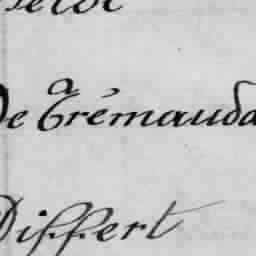 De Grémauda
Differt